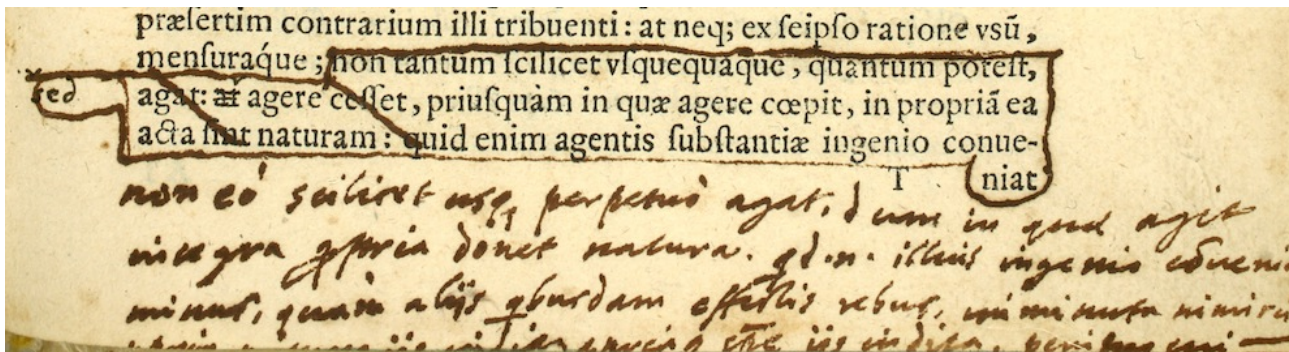 præsertim contrarium illi tribuenti: at neq; ex seipso ratione vsũ,
mensuráque; non tantum scilicet vsquequáque, quantum potest,
sed
agat: at agere cesset, priusquàm in quæ agere cœpit, in propriã ea
acta sint naturam: quid enim agentis substantiæ ingenio conue-
T niat
non eò scilicet usq perpetuò agat, dum in quæ agit
integra propria donet natura. qd .n. illius ingenio cōveni
minus, quàm aliis qbusdam effectis rebus, nimirum